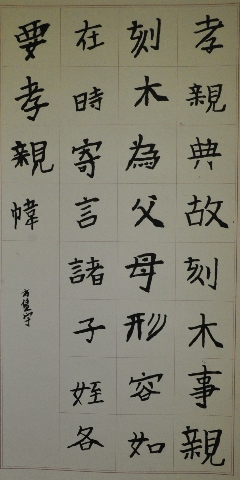 孝親典故刻木事親
刻木為父母形容如
在時寄言諸子姪各
要孝親幃